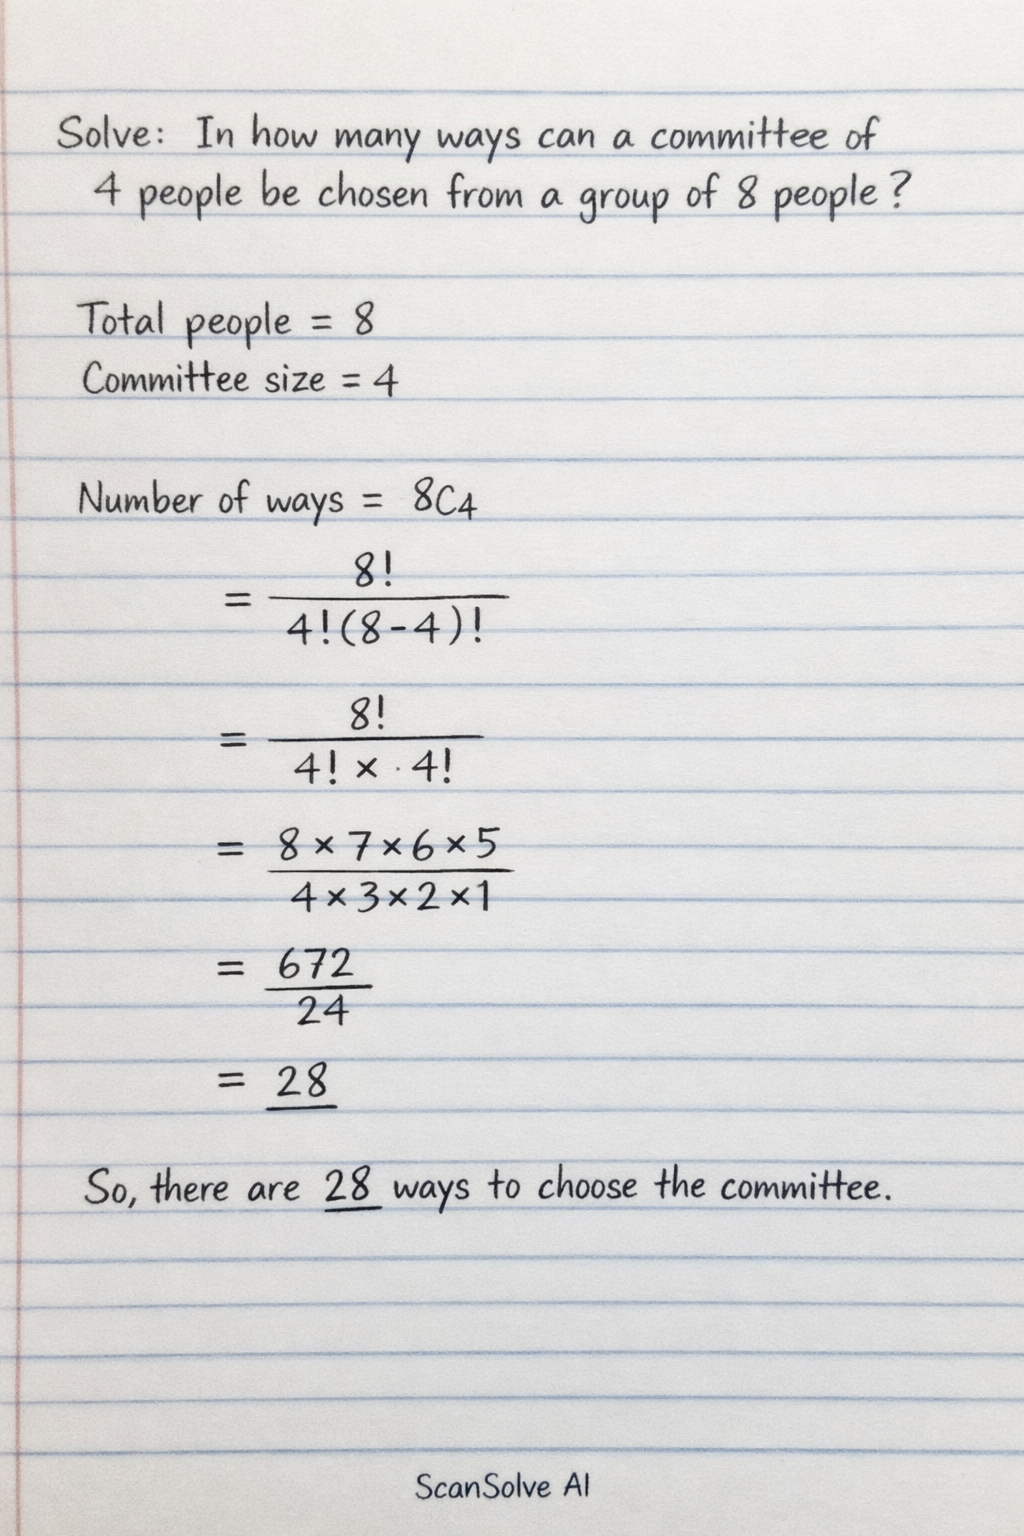 Solve: In how many ways can a committee of
4 people be chosen from a group of 8 people?
Total people = 8
Committee size = 4
Number of ways = 8C4
= 8! / 4!(8-4)!
= 8! / 4! × 4!
= 8×7×6×5 / 4×3×2×1
= 672 / 24
= 28
So, there are 28 ways to choose the committee.
ScanSolve AI